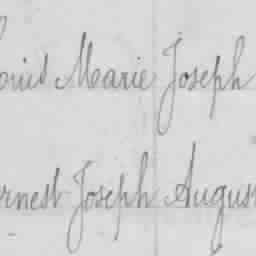 ouis Marie Joseph
rnest Joseph Augus